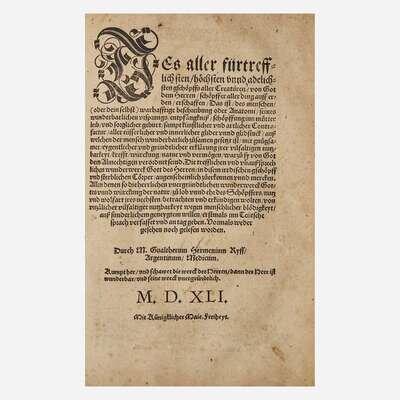 Des aller fürtreff-
lichsten/höchsten vnnd adelich-
sten gschöpffs aller Creaturen/ von Got
dem Herren/ schöpffer aller ding auff er-
den/ erschaffen/ Das ist/ des menschen/
(oder dein selbst) warhafftige beschreibung oder Anatomi/ seines
wunderbarlichen vrsprungs, entpfängknuß/ schöpffung inn mütter
leib/ vnd sorglicher geburt. sampt künstlicher vnd artlicher Contra-
factur/ aller eüsserlicher vnd innerlicher glider vnnd glidstuck/ auß
welchen der menschlich Cörper zůsamen gesetzt ist. mit gnůgsa-
mer/ eygentlicher vnd gründtlicher erklärung irer vilfaltigen nutz-
barkeyt/ krefft/ würckung/ natur vnd vermögen/ warzů sy von Got
dem Almechtigen verordnet seind. Die trefflichen vnd vnaußsprech-
licher wunderwerck Gott des Herren/ in disem irdischen gschöpff
vnd sterblichen Cörper/ augenscheinlich zů erkennen vnnd mercken.
Allen denen so die herrlichen vnergründtlichen wunderwerck Got-
tes vnd würckung der natur/ zů lob vnnd ehr des Schöpffers/ nutz
vnd wolfart ires nechsten/ betrachten vnd erkündigen wolten, von
manigerley vilfaltiger nutzbarkeyt wegen menschlicher blödigkeyt/
auß sunderlichem geneygtem willen, erstmals inn Teütsche
sprach verfasset vnd an tag geben. Vormals weder
gesehen noch gelesen worden.
Durch M. Gualtherum Hermenium Ryff/
Argentinum/ Medicum.
Kumpt her/ vnd schawet die werck des Herren/ dann der Herr ist
wunderbar/ vnd seine werck vnergründtlich.
M. D. XLI.
Mit Künigklicher Maie. Freiheyt.